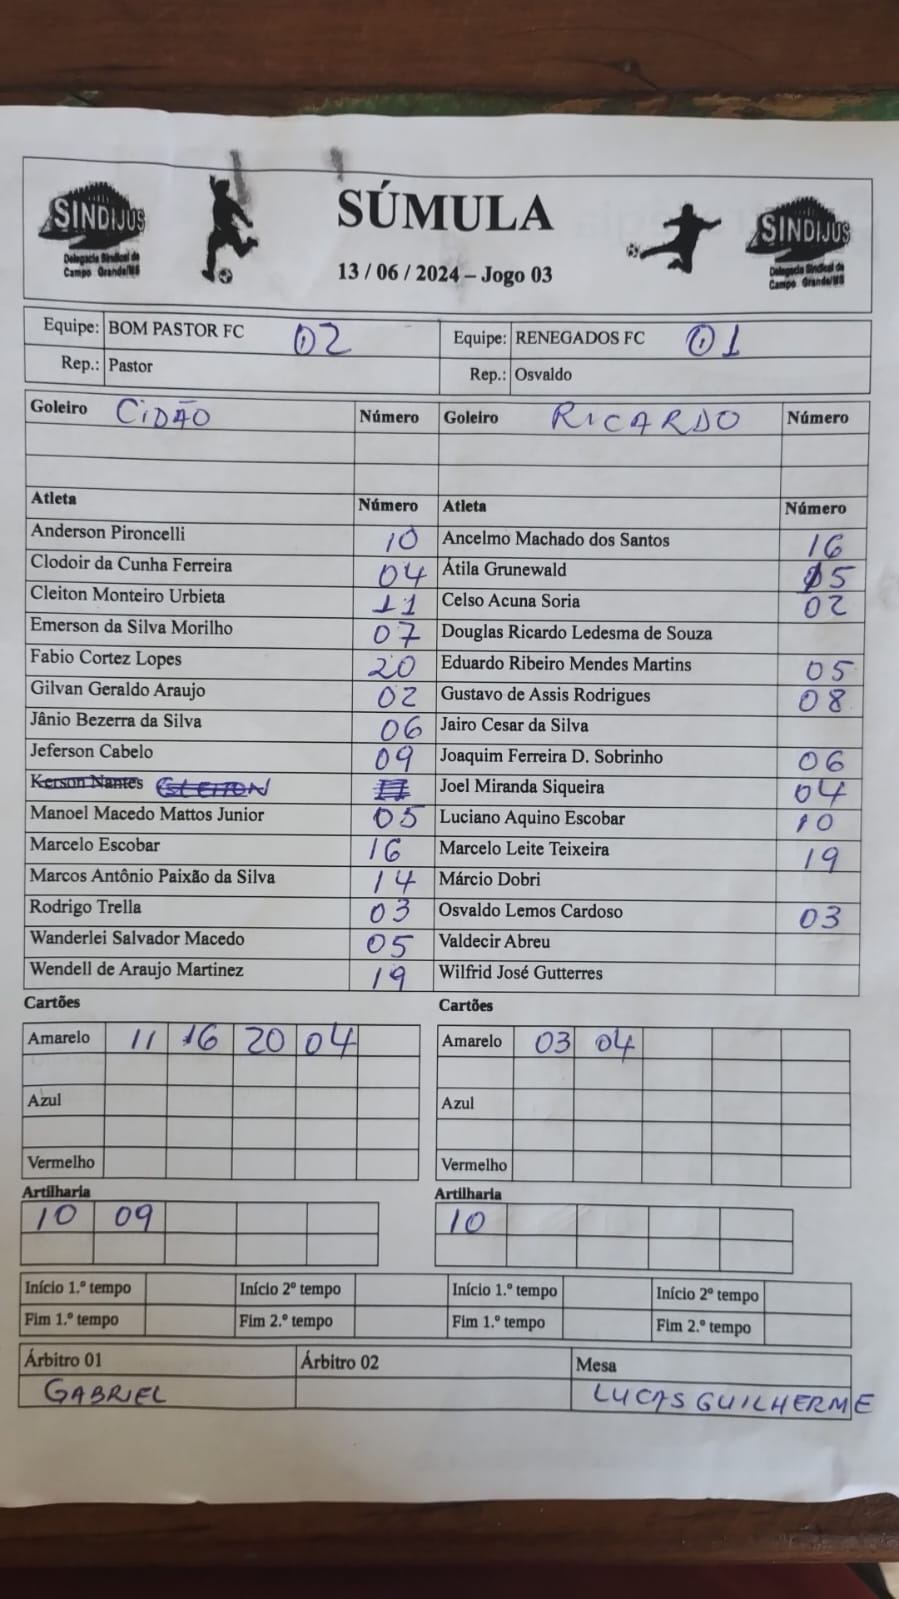 SINDIJUS
Delegacia Sindical de
Campo Grande/MS
SÚMULA
13 / 06 / 2024 – Jogo 03
SINDIJUS
Delegacia Sindical de
Campo Grande/MS
Equipe: BOM PASTOR FC 02 Equipe: RENEGADOS FC 01
Rep.: Pastor Rep.: Osvaldo
Goleiro CIDÃO Número Goleiro RICARDO Número
Atleta Número Atleta Número
Anderson Pironcelli 10 Ancelmo Machado dos Santos 16
Clodoir da Cunha Ferreira 04 Átila Grunewald 15
Cleiton Monteiro Urbieta 11 Celso Acuna Soria 02
Emerson da Silva Morilho 07 Douglas Ricardo Ledesma de Souza
Fabio Cortez Lopes 20 Eduardo Ribeiro Mendes Martins 05
Gilvan Geraldo Araujo 02 Gustavo de Assis Rodrigues 08
Jânio Bezerra da Silva 06 Jairo Cesar da Silva
Jeferson Cabelo 09 Joaquim Ferreira D. Sobrinho 06
Kerson Nantes Joel Miranda Siqueira 04
Manoel Macedo Mattos Junior 05 Luciano Aquino Escobar 10
Marcelo Escobar 16 Marcelo Leite Teixeira 19
Marcos Antônio Paixão da Silva 14 Márcio Dobri
Rodrigo Trella 03 Osvaldo Lemos Cardoso 03
Wanderlei Salvador Macedo 05 Valdecir Abreu
Wendell de Araujo Martinez 19 Wilfrid José Gutterres
Cartões Cartões
Amarelo 11 16 20 04 Amarelo 03 04
Azul Azul
Vermelho Vermelho
Artilharia Artilharia
10 09 10
Início 1.º tempo Início 2º tempo Início 1.º tempo Início 2º tempo
Fim 1.º tempo Fim 2.º tempo Fim 1.º tempo Fim 2.º tempo
Árbitro 01 Árbitro 02 Mesa
GABRIEL LUCAS GUILHERME